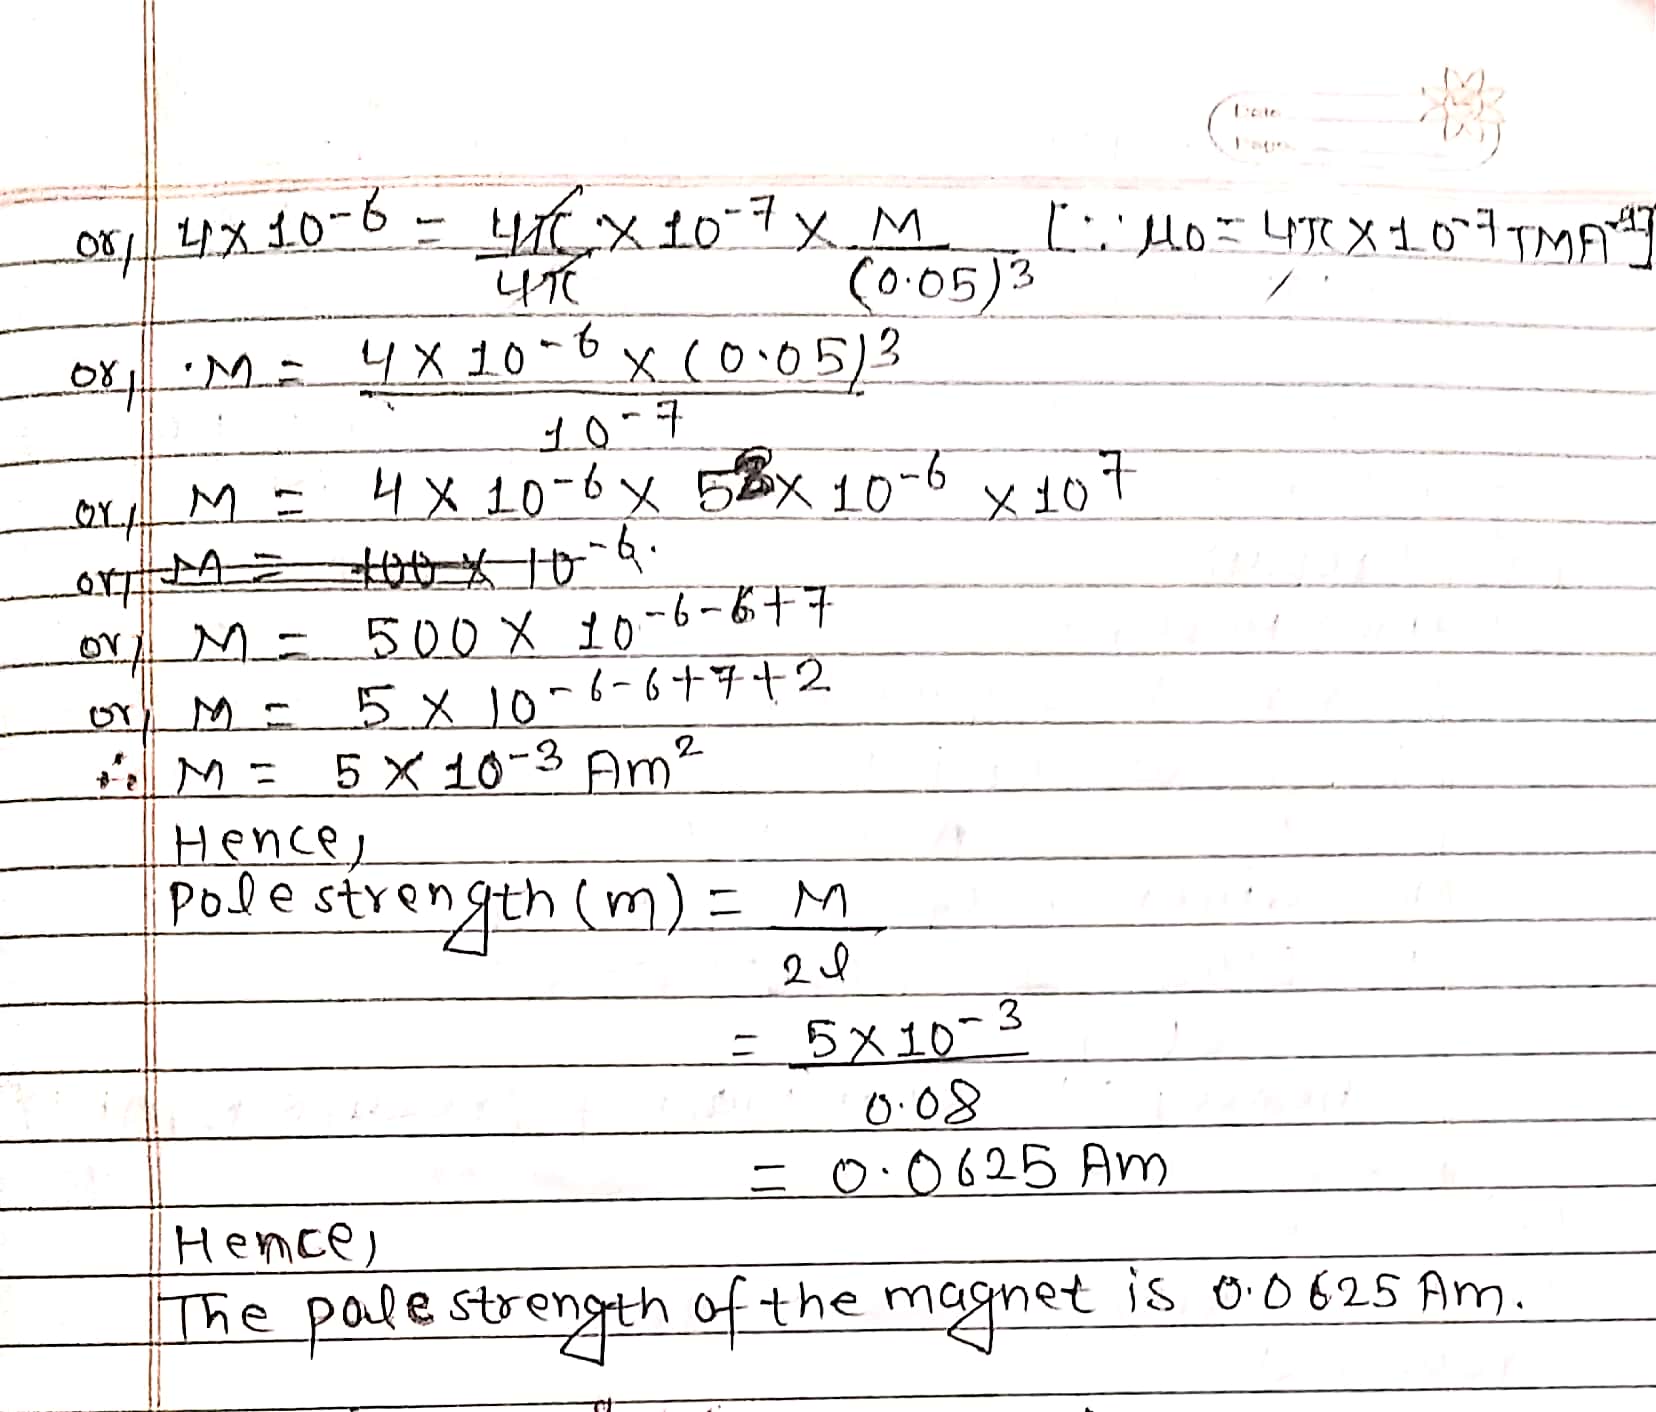 Date
Page
or, 4 x 10-6 = 4π x 10-7 x M [∵ μ0 = 4π x 10-7 TMA-1]
4π (0.05)3
or, M = 4 x 10-6 x (0.05)3
10-7
or, M = 4 x 10-6 x 53 x 10-6 x 107
or, M = 100 x 10-6.
or, M = 500 x 10-6-6+7
or, M = 5 x 10-6-6+7+2
∴ M = 5 x 10-3 Am2
Hence,
Pole strength (m) = M
2l
= 5 x 10-3
0.08
= 0.0625 Am
Hence,
The pole strength of the magnet is 0.0625 Am.